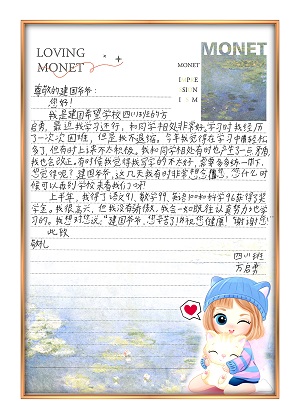 LOVING
MONET
MONET
MONET
尊敬的建国爷爷：
您好！
我是建国希望学校四川班的方
启勇，最近我学习还行，和同学相处非常好。学习时我经历
了一次次困难，但是我不退缩。今年我觉得在学习中情轻松
多了，但有时上课不太积极。我和同学相处有时也产生了一点矛盾
我也会改正。有时候我觉得我字的不太好，需要多多练一下，
您觉得呢？建国爷爷，这几天我有时非常想念您，您什么时
候可以再到学校来看我们了呢？
上半年，我得了语文91，数学99，英语100和科学96获得了奖
学金。我很高兴，但我没有骄傲，我会一如既往认真努力地学
习的。我想对您说：“建国爷爷，您辛苦了！并祝您健康！谢谢您！”
此致
敬礼
四川班
方启勇